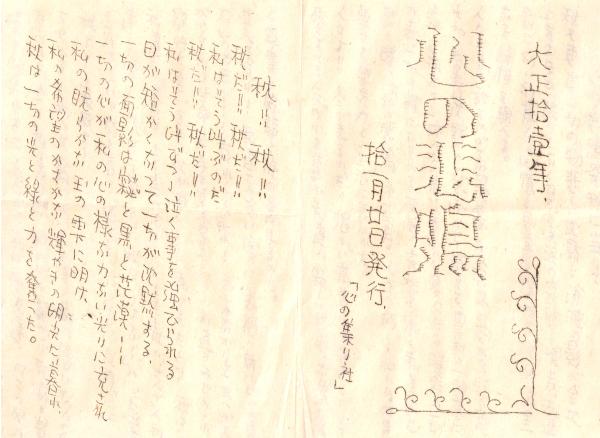 大正拾壹年、
心の悲鳴
拾一月廿日発行、
「心の集り社」
秋!! 秋!!
秋だ!!! 秋だ!!!
私はそう叫ぶのだ
秋だ!!! 秋だ!!!
私はそう叫ずつゝ泣く事を強ひられる
日が短かくなつて一切が沈黙する、
一切の面影は凝と黒と茫漠……
一切の心が私の心の様な力ない光りに充され
私の
私の希望のかすかな輝やきの
秋は一切の光と緑と力を奪つた。